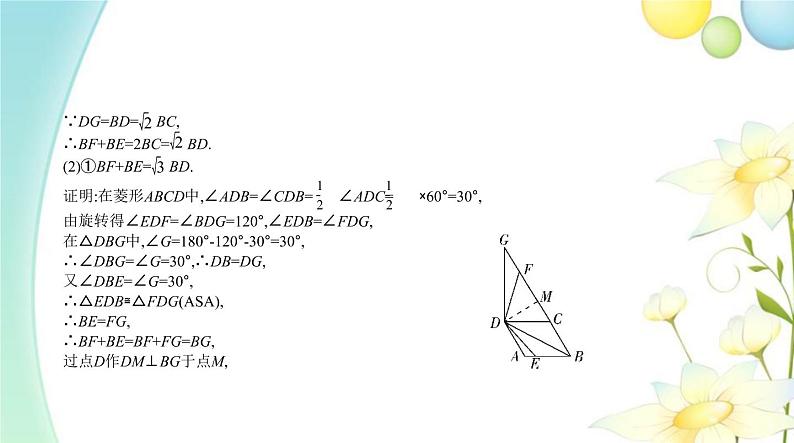 ∵DG=BD=√2 BC,
∴BF+BE=2BC=√2 BD.
(2)①BF+BE=√3 BD.
证明:在菱形ABCD中,∠ADB=∠CDB=1/2∠ADC=1/2×60°=30°,
由旋转得∠EDF=∠BDG=120°,∠EDB=∠FDG,
在△DBG中,∠G=180°-120°-30°=30°,
∴∠DBG=∠G=30°,∴DB=DG,
又∠DBE=∠G=30°,
∴△EDB≌△FDG(ASA),
∴BE=FG,
∴BF+BE=BF+FG=BG,
过点D作DM⊥BG于点M,
G
F
M
D
C
A
E
B